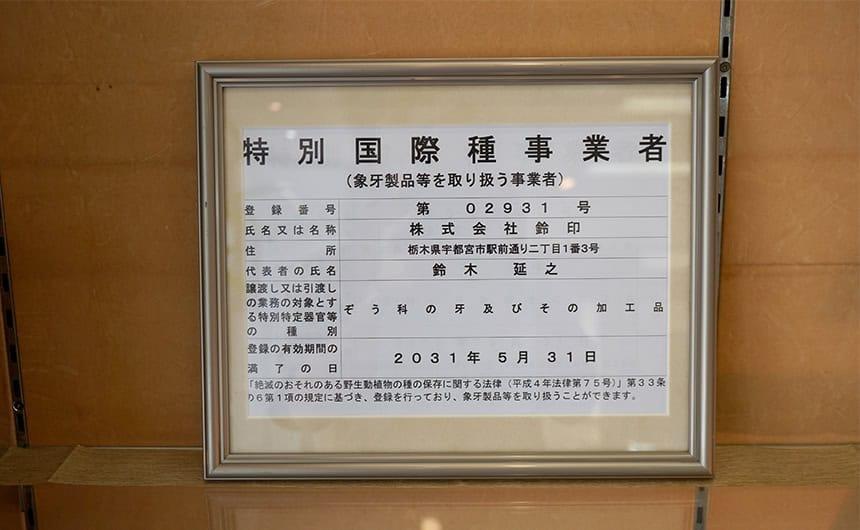 特別国際種事業者
（象牙製品等を取り扱う事業者）
登録番号 第02931号
氏名又は名称 株式会社鈴印
住所 栃木県宇都宮市駅前通り二丁目1番3号
代表者の氏名 鈴木 延之
譲渡し又は引渡し
の業務の対象とす
る特別特定器官等
の種別 ぞう科の牙及びその加工品
登録の有効期間の
満了の日 2031年5月31日
「絶滅のおそれのある野生動植物の種の保存に関する法律（平成4年法律第75号）」第33条
の6第1項の規定に基づき、登録を行っており、象牙製品等を取り扱うことができます。